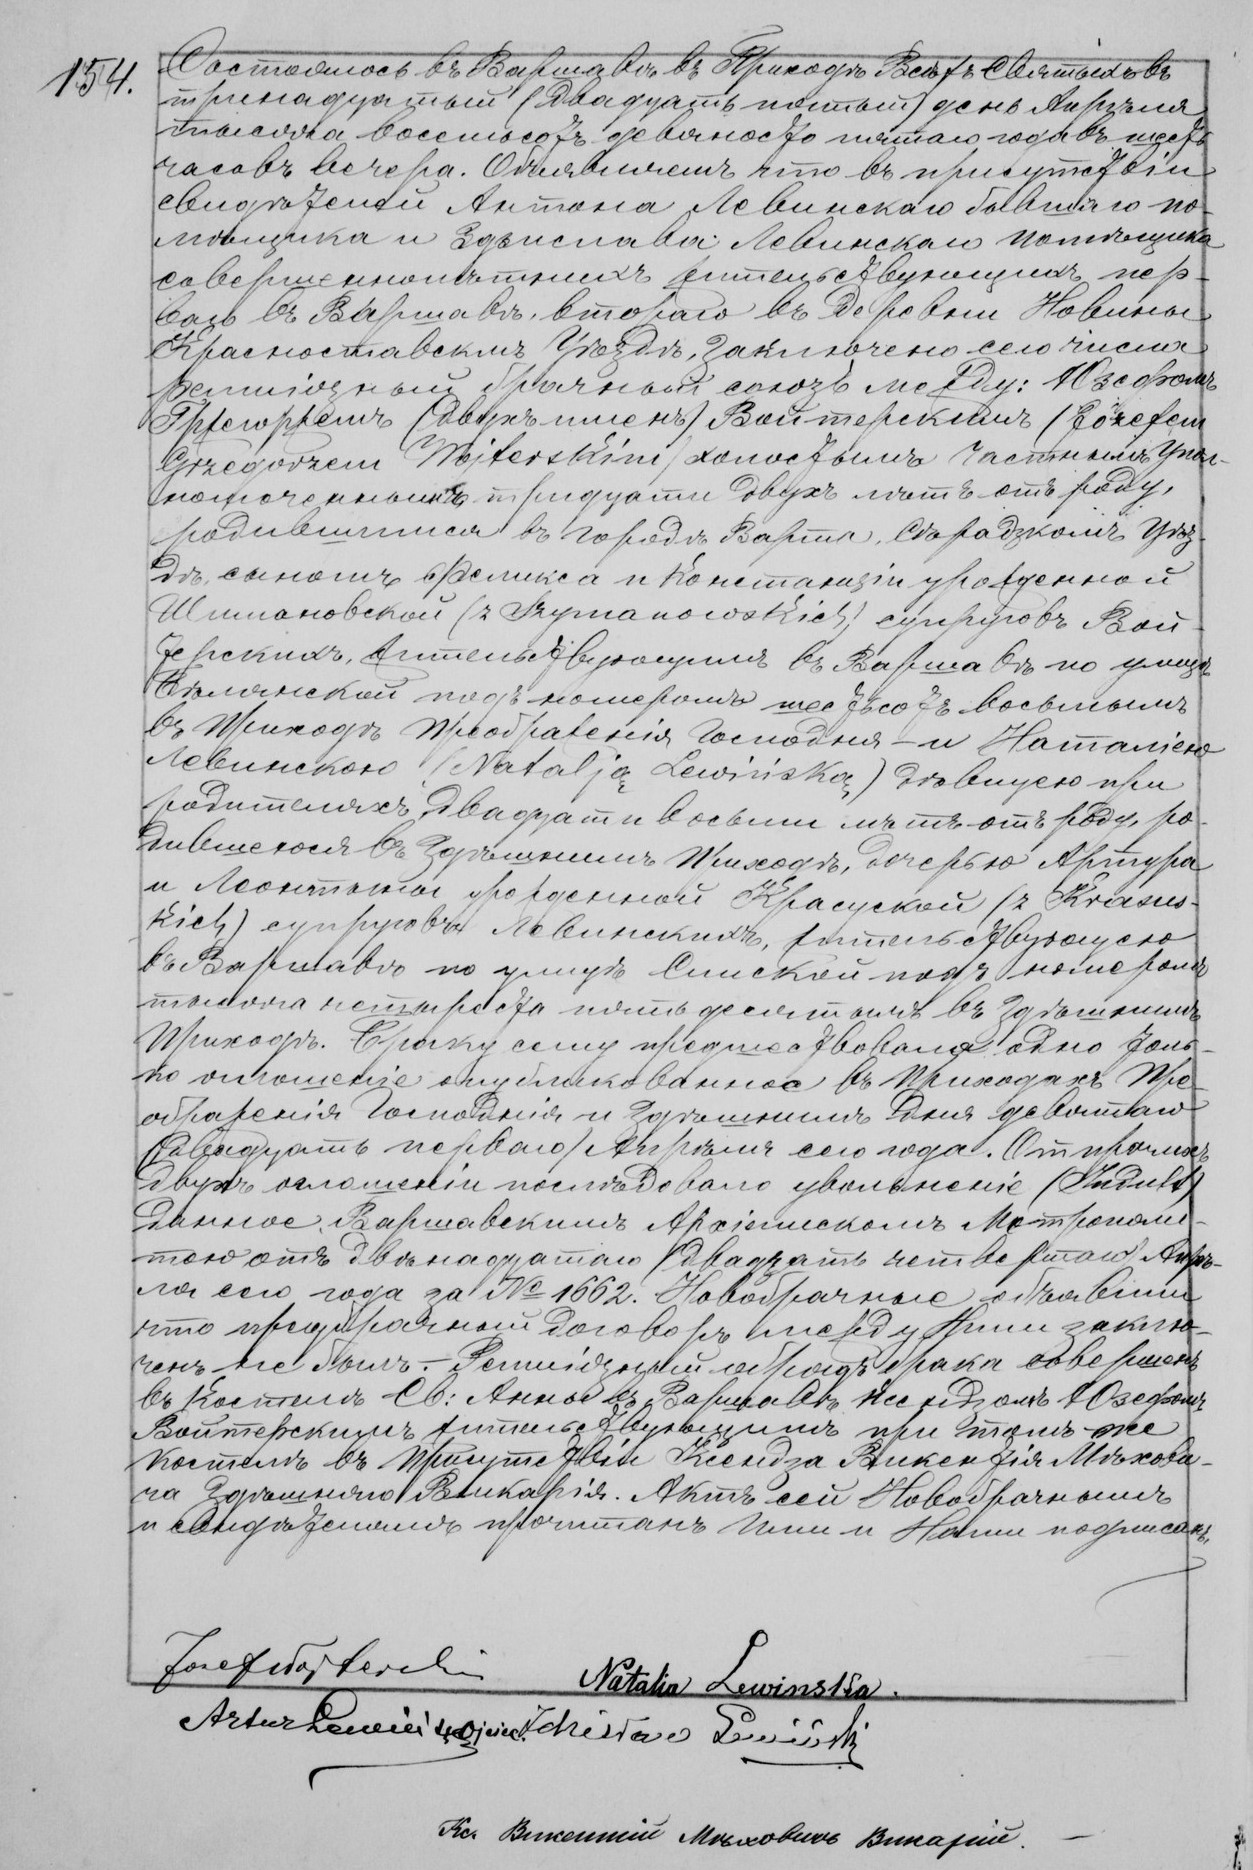 154.
Состоялось въ Варшавѣ въ Приходѣ Всѣхъ Святыхъ въ
тринадцатый (двадцать пятый) день Апрѣля
тысяча восемьсотъ девяносто пятаго года въ шесть
часовъ вечера. Объявляемъ что въ присутствіи
свидѣтелей Антона Левинскаго бывшаго по-
мѣщика и Здзислава Левинскаго помѣщика
совершеннолѣтнихъ жительствующихъ пер-
ваго въ Варшавѣ, втораго въ деревни Новины
Красноставскомъ Уѣздѣ, заключено сего числа
религіозный брачный союзъ между: Юзефомъ
Гржегоржемъ (двухъ именъ) Войтерскимъ (Józefem
Grzegorzem Wojterskim) холостымъ Частнымъ Упол-
номоченнымъ тридцати двухъ лѣтъ отъ роду,
родившимся въ городѣ Варта, Сѣрадзкомъ Уѣз-
дѣ, сыномъ Феликса и Констанціи урожденной
Шимановской (z Szymanowskich) супруговъ Вой-
терскихъ, жительствующимъ въ Варшавѣ по улицѣ
Бѣлянской подъ номеромъ шестьсотъ восьмымъ
въ Приходѣ Преображенія Господня – и Наталіею
Левинскою (Natalją Lewińską) дѣвицею при
родителяхъ, двадцати восьми лѣтъ отъ роду, ро-
дившеюся въ здѣшнимъ Приходѣ, дочерью Артура
и Леонтины урожденной Красуской (z Krasus-
kich) супруговъ Левинскихъ, жительствующею
въ Варшавѣ по улицѣ Слиской подъ номеромъ
тысяча четыреста пятьдесятымъ въ здѣшнимъ
Приходѣ. Браку сему предшествовало одно толь-
ко оглошеніе опубликованное въ Приходахъ Пре-
ображенія Господнія и здѣшнимъ дня девятаго
(двадцать перваго) Апрѣля сего года. От прочихъ
двухъ оглошеніи послѣдовало увольненіе (Indult)
данное Варшавскимъ Архіепископомъ Метрополи-
тою отъ двѣнадцатаго (двадцать четвертаго) Апрѣ-
ля сего года за № 1662. Новобрачные объявили
что предбрачный договоръ между Ними заклю-
ченъ не былъ. – Религіозный обрядъ брака совершенъ
въ Костелѣ Св: Анны въ Варшавѣ Ксендзомъ Юзефомъ
Войтерскимъ жительствующимъ при томъ-же
Костелѣ въ присутствіи Ксендза Викентія Мѣхови-
ча Здѣшняго Викарія. Актъ сей Новобрачнымъ
и свидѣтелямъ прочитанъ Ими и Нами подписанъ.
Józef Wojterski
Natalia Lewinska.
Artur Lewiński Ojciec. Zdzisław Lewiński
Кс. Викентій Мѣховичъ Викарій. –